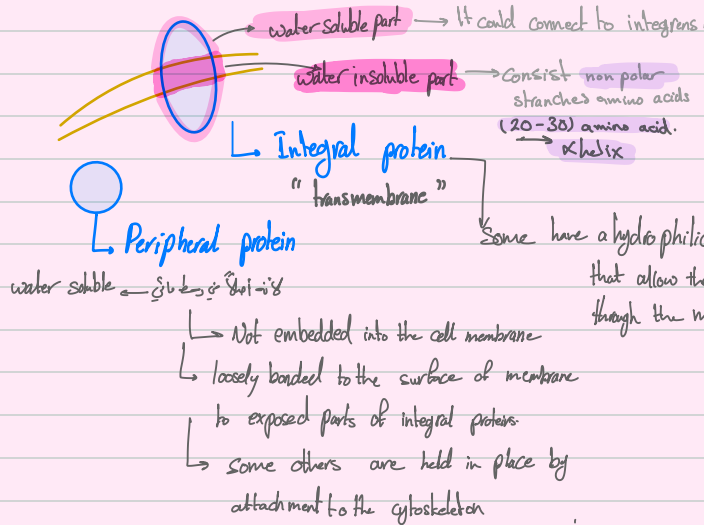 water soluble part → It could connect to integrens
water insoluble part → Consist non polar
stranches amino acids
(20-30) amino acid.
→ αhelix
Integral protein
"transmembrane"
Peripheral protein
Some have a hydrophilic
that allow th
through the m
water soluble ←
Not embedded into the cell membrane
loosely bonded to the surface of membrane
to exposed parts of integral proteins.
some others are held in place by
attachment to the cytoskeleton